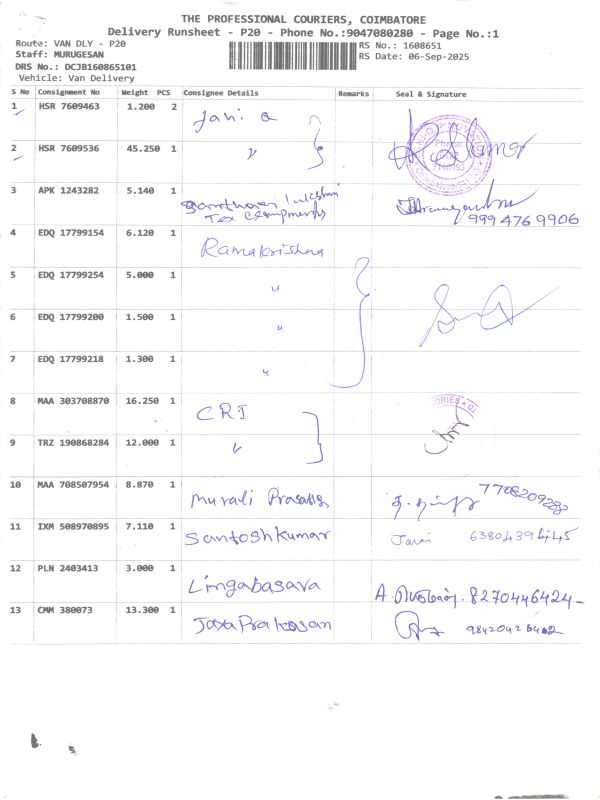 THE PROFESSIONAL COURIERS, COIMBATORE
Delivery Runsheet - P20 - Phone No.:9047080280 - Page No.:1
Route: VAN DLY - P20
RS No.: 1608651
Staff: MURUGESAN
RS Date: 06-Sep-2025
DRS No.: DCJB160865101
Vehicle: Van Delivery
S No Consignment No Weight PCS Consignee Details Remarks Seal & Signature
1 HSR 7609463 1.200 2
2 HSR 7609536 45.250 1 "
3 APK 1243282 5.140 1
Tex
9994769906
4 EDQ 17799154 6.120 1 Ramakrishna
5 EDQ 17799254 5.000 1 "
6 EDQ 17799200 1.500 1 "
7 EDQ 17799218 1.300 1 "
8 MAA 303708870 16.250 1 CRI
9 TRZ 190868284 12.000 1 "
10 MAA 708507954 8.870 1 Murali
11 IXM 508970895 7.110 1 Santoshkumar
12 PLN 2403413 3.000 1 Lingabasava
8270446424
13 CMM 380073 13.300 1 JayaPrakasan